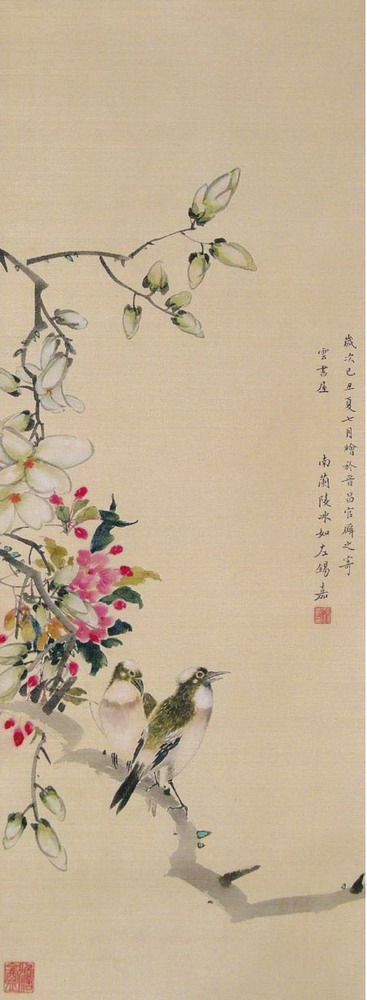 歲次己丑夏七月繪於晉昌官廨之寄
雲書屋
南蘭陵冰如左錫嘉